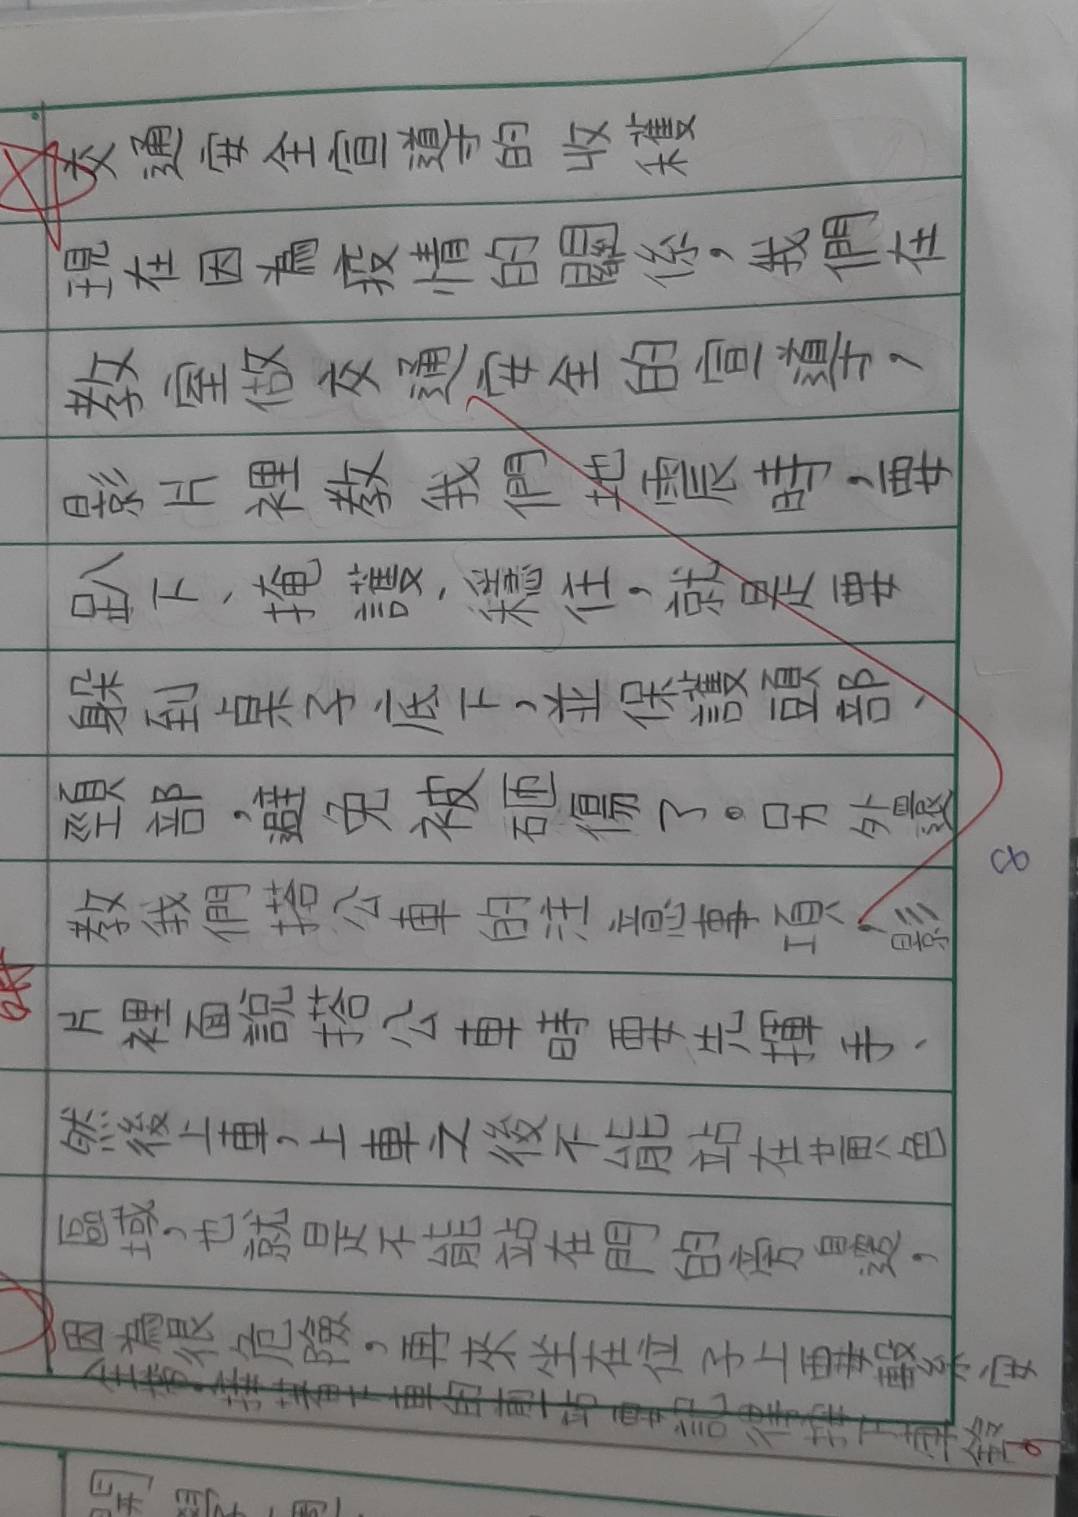 交通安全宣導的收穫
現在因為疫情的關係，我們在
教室做交通安全的宣導，
影片裡教我們地震時，要
趴下、掩護、穩住，就是要
躲到桌子底下，並保護頭部、
頸部，避免被砸傷了。另外還
教我們搭公車的注意事項，影
片裡面說搭公車時要先揮手、
然後上車，上車之後不能站在黃色
區域，也就是不能站在門的旁邊，
因為很危險，再來坐在位子上要繫好安
全帶，接著下車的前一站要記得按下車鈴。
8